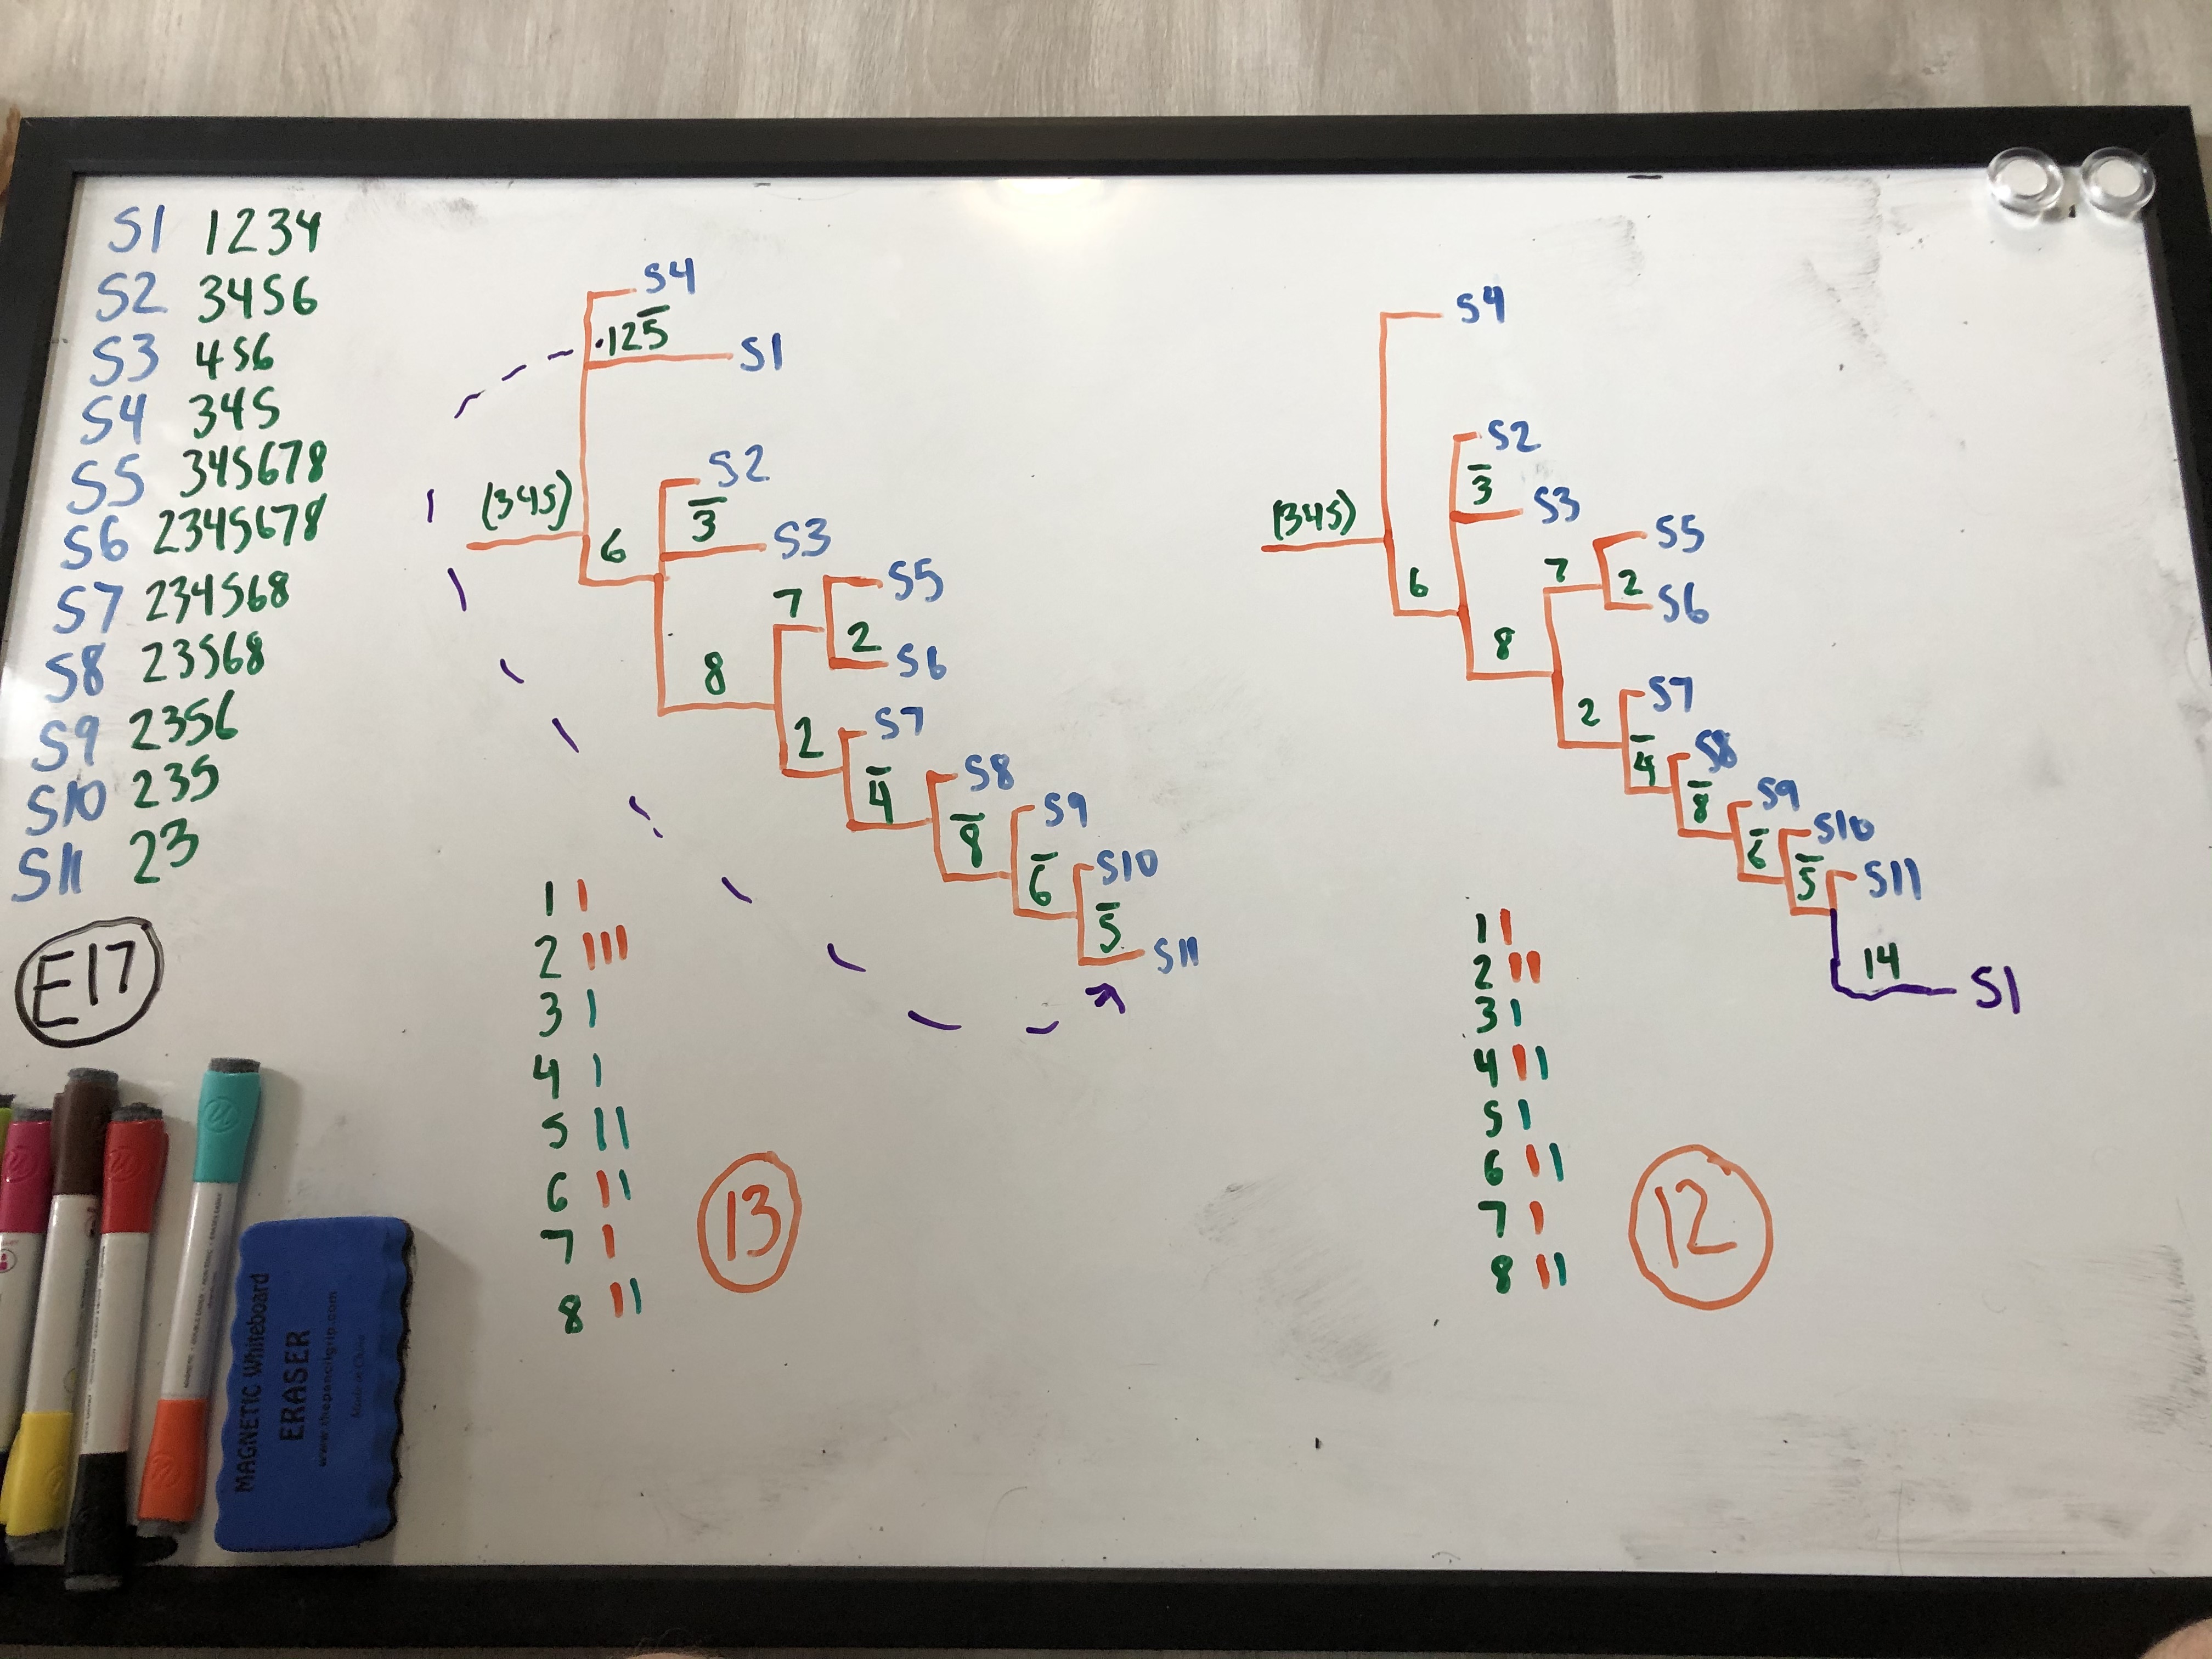 S1 1234
S2 3456
S3 456
S4 345
S5 345678
S6 2345678
S7 234568
S8 23568
S9 2356
S10 235
S11 23
E17
S4
125̅
S1
(345)
S2
3̅
S3
6
7
S5
2
S6
8
2
S7
4̅
S8
8̅
S9
6̅
S10
5̅
S11
1
2
3
4
5
6
7
8
13
S4
(345)
S2
3̅
S3
6
7
S5
2
S6
8
2
S7
4̅
S8
8̅
S9
6̅
S10
5̅
S11
14
S1
1
2
3
4
5
6
7
8
12
MAGNETIC Whiteboard
ERASER
www.thepencilgrip.com
Made in China